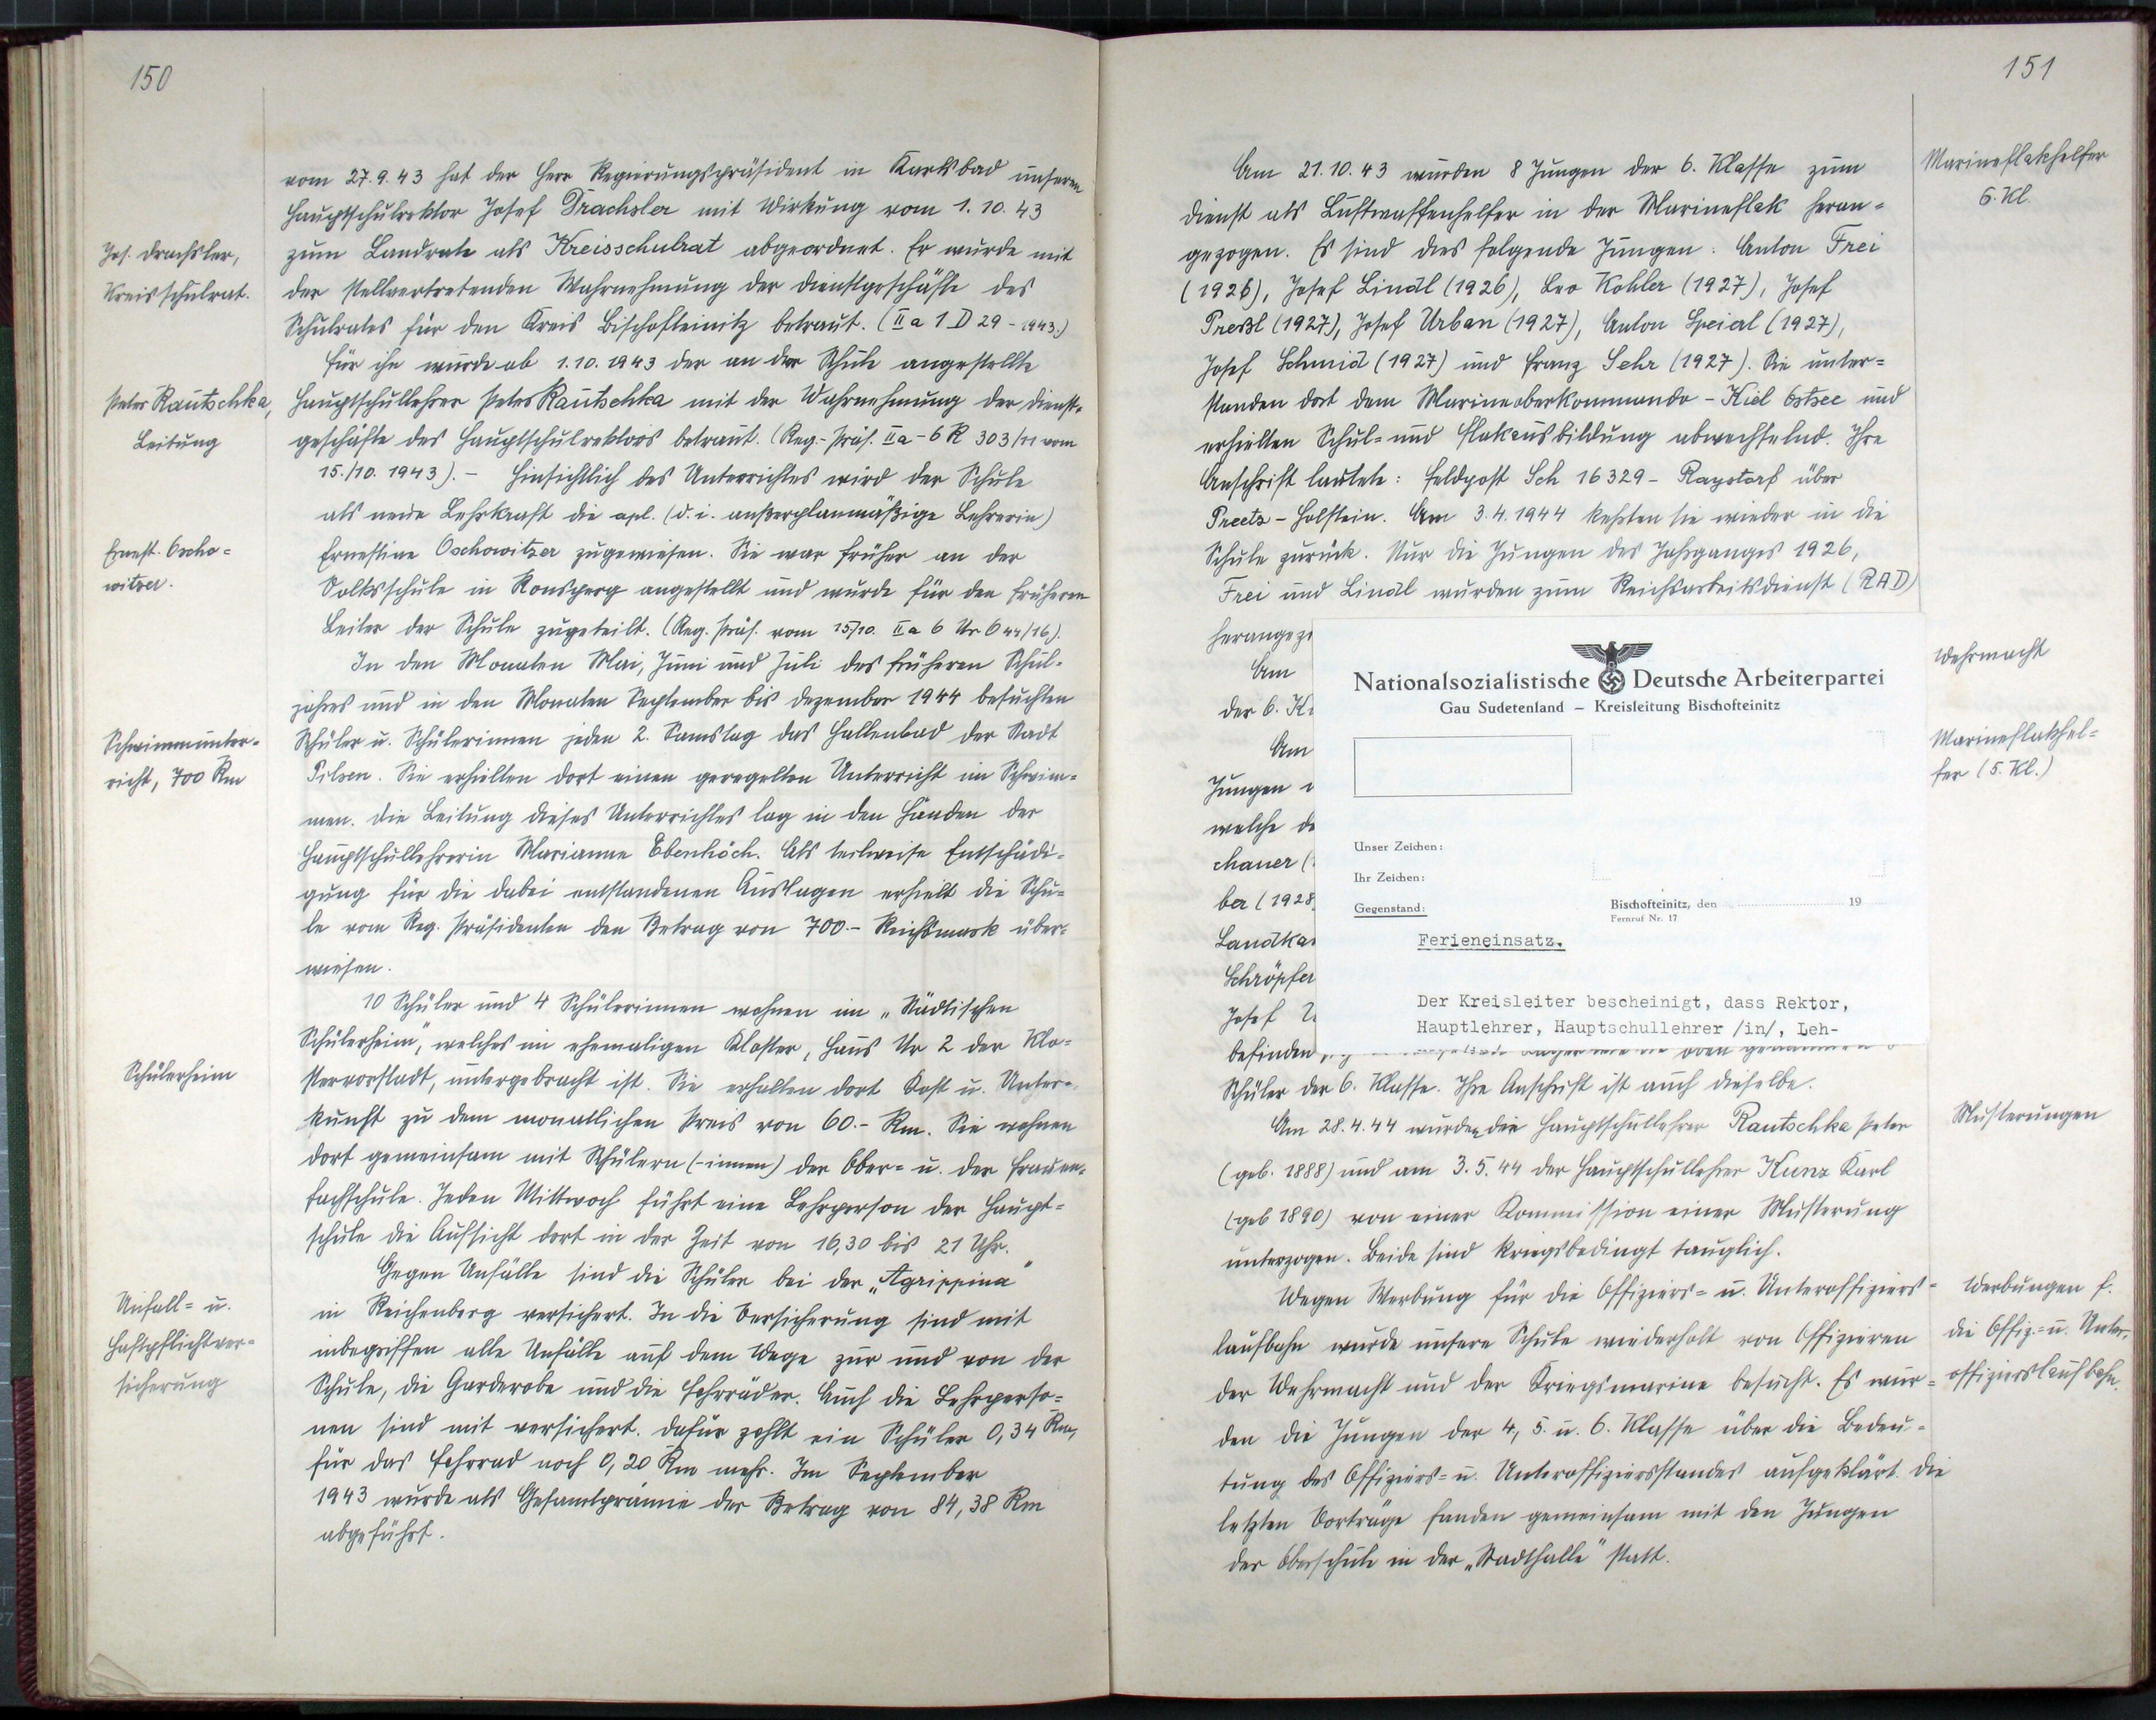 150
vom 27.9.43 hat der Herr Regierungspräsident in Karlsbad unseren
Hauptschulrektor Josef Drachsler mit Wirkung vom 1.10.43
Jos. Drachsler,
zum Landrate als Kreisschulrat abgeordnet. Er wurde mit
Kreisschulrat.
der stellvertretenden Wahrnehmung der Dienstgeschäfte des
Schulrates für den Kreis Bischofteinitz betraut. (IIa 1 D 29 - 1943.)
Für ihn wurde ab 1.10.1943 der an der Schule angestellte
Peter Rautschka,
Hauptschullehrer Peter Rautschka mit der Wahrnehmung der Dienst-
Leitung
geschäfte des Hauptschulrektors betraut. (Reg.-Präs. IIa - 6 R 303/11 vom
15./10. 1943). - Hinsichtlich des Unterrichtes wird der Schule
als neue Lehrkraft die apl. (d. i. außerplanmäßige Lehrerin)
Ernest. Oscho=
witzer.
Ernestine Oschowitzer zugewiesen. Sie war früher an der
Volksschule in Ronsperg angestellt und wurde für den früheren
Leiter der Schule zugeteilt. (Reg. Präs. vom 15/10. IIa 6 Nr O 44/16).
In den Monaten Mai, Juni und Juli des früheren Schul-
jahres und in den Monaten September bis Dezember 1944 besuchten
Schwimmunter-
richt, 700 Rm
Schüler u. Schülerinnen jeden 2. Samstag das Hallenbad der Stadt
Pilsen. Sie erhielten dort einen geregelten Unterricht im Schwim=
men. Die Leitung dieses Unterrichtes lag in den Händen der
Hauptschullehrerin Marianne Ebenhöch. Als teilweise Entschädi=
gung für die dabei entstandenen Auslagen erhielt die Schu=
le vom Reg. Präsidenten den Betrag von 700.- Reichsmark über=
wiesen.
10 Schüler und 4 Schülerinnen wohnen im „Städtischen
Schülerheim", welches im ehemaligen Kloster, Haus Nr 2 der Klo=
Schülerheim
stervorstadt, untergebracht ist. Sie erhalten dort Kost u. Unter=
kunft zu dem monatlichen Preis von 60.- Rm. Sie wohnen
dort gemeinsam mit Schülern (-innen) der Ober= u. der Frauen=
fachschule. Jeden Mittwoch führt eine Lehrperson der Haupt=
schule die Aufsicht dort in der Zeit von 16,30 bis 21 Uhr.
Gegen Unfälle sind die Schüler bei der „Agrippina"
Unfall= u.
Haftpflichtver=
sicherung
in Reichenberg versichert. In die Versicherung sind mit
inbegriffen alle Unfälle auf dem Wege zur und von der
Schule, die Garderobe und die Fahrräder. Auch die Lehrperso=
nen sind mit versichert. Dafür zahlt ein Schüler 0,34 Rm,
für das Fahrrad noch 0,20 Rm mehr. Im September
1943 wurde als Gesamtprämie der Betrag von 84,38 Rm
abgeführt.
151
Marineflakhelfer
6. Kl.
Am 21.10.43 wurden 8 Jungen der 6. Klasse zum
Dienst als Luftwaffenhelfer in der Marineflak heran=
gezogen. Es sind dies folgende Jungen: Anton Frei
(1926), Josef Lindl (1926), Leo Kohler (1927), Josef
Preßl (1927), Josef Urban (1927), Anton Speierl (1927),
Josef Schmid (1927) und Franz Sehr (1927). Sie unter=
standen dort dem Marineoberkommando - Kiel Ostsee und
erhielten Schul= und Flakausbildung abwechselnd. Ihre
Anschrift lautete: Feldpost Sch 16329 - Raystorf über
Preetz - Holstein. Am 3.4.1944 kehrten sie wieder in die
Schule zurück. Nur die Jungen des Jahrganges 1926,
Frei und Lindl wurden zum Reichsarbeitsdienst (RAD)
Wehrmacht
Am
der 6. Kl
Marineflakhel=
fer (5. Kl.)
Am
Jungen
welche
chauer (
ber (1928
Schröpfer
Josef
befinden
Nationalsozialistische Deutsche Arbeiterpartei
Gau Sudetenland – Kreisleitung Bischofteinitz
Unser Zeichen:
Ihr Zeichen:
Gegenstand:
Bischofteinitz, den 19
Fernruf Nr. 17
Ferieneinsatz.
Der Kreisleiter bescheinigt, dass Rektor,
Hauptlehrer, Hauptschullehrer /in/, Leh-
Schüler der 6. Klasse. Ihre Anschrift ist auch dieselbe.
Musterungen
Am 28.4.44 wurden die Hauptschullehrer Rautschka Peter
(geb. 1888) und am 3.5.44 der Hauptschullehrer Kunz Karl
(geb 1890) von einer Kommission einer Musterung
unterzogen. Beide sind kriegsbedingt tauglich.
Werbungen f.
die Offiz.= u. Unter=
offizierslaufbahn.
Wegen Werbung für die Offiziers= u. Unteroffiziers=
laufbahn wurde unsere Schule wiederholt von Offizieren
der Wehrmacht und der Kriegsmarine besucht. Es wur=
den die Jungen der 4., 5. u. 6. Klasse über die Bedeu=
tung des Offiziers= u. Unteroffiziersstandes aufgeklärt. Die
letzten Vorträge fanden gemeinsam mit den Jungen
der Oberschule in der „Stadthalle" statt.